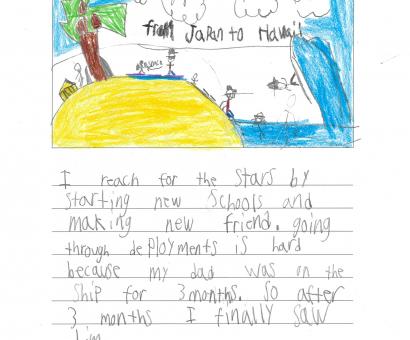 from Japan to Hawaii
I reach for the stars by
starting new schools and
making new friend. going
through deployments is hard
because my dad was on the
ship for 3 months. so after
3 months I finally saw
him